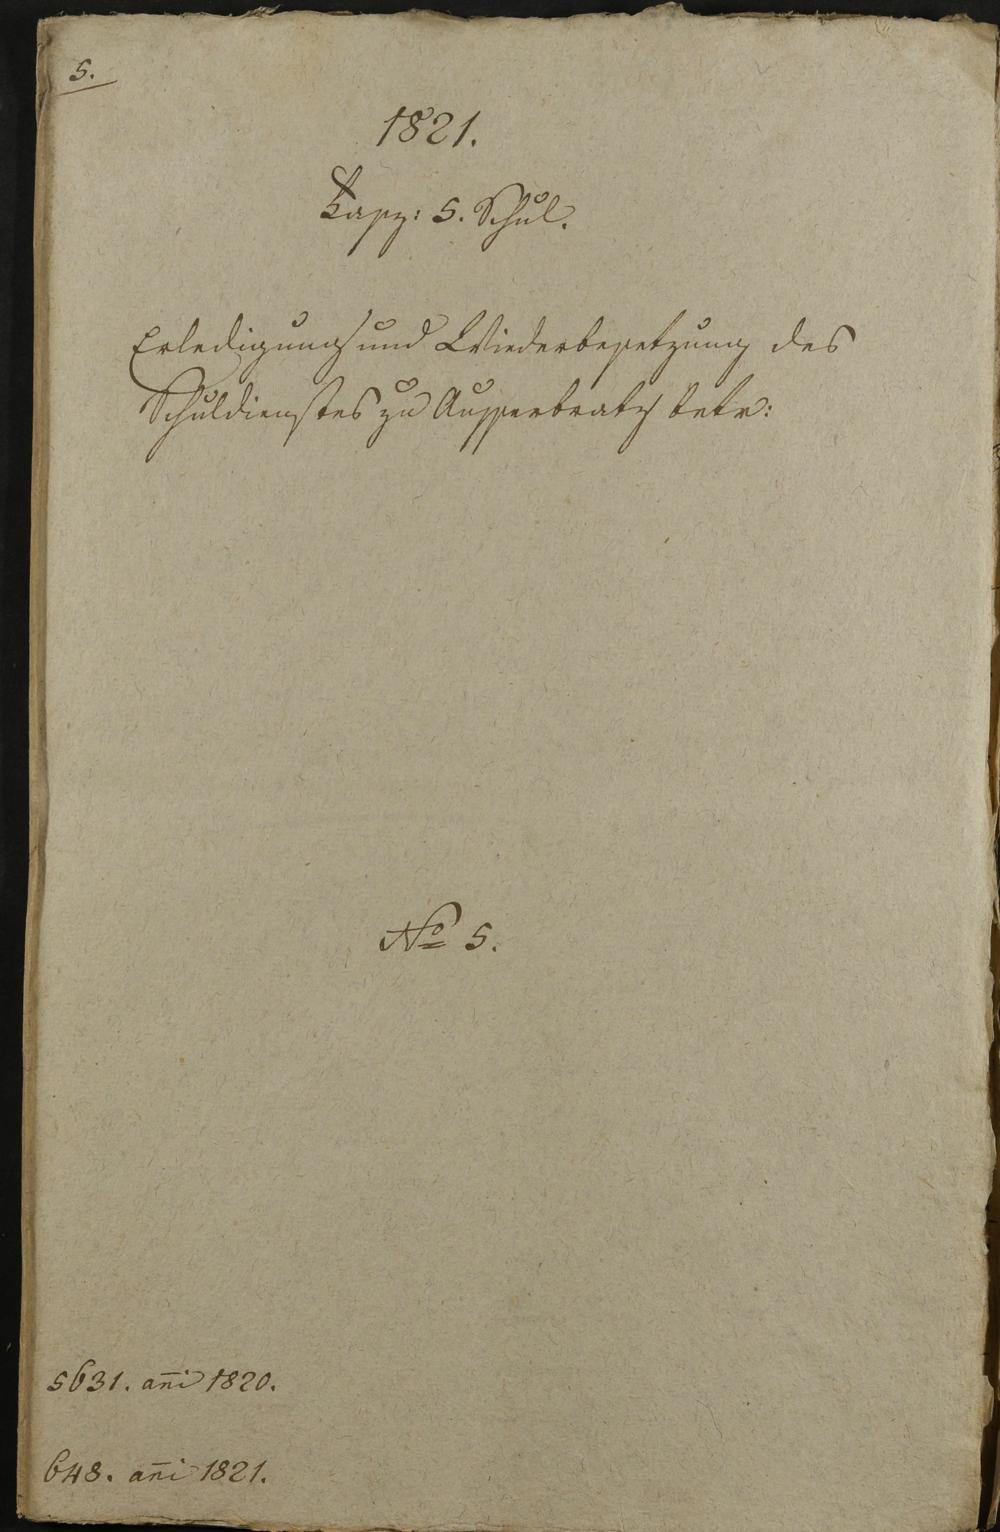 5.
1821.
Fasz: 5. Schul.
Erledigung und Wiederbesetzung des
Schuldienstes zu Ausserbratz betr:
No 5.
5631. añi 1820.
648. añi 1821.